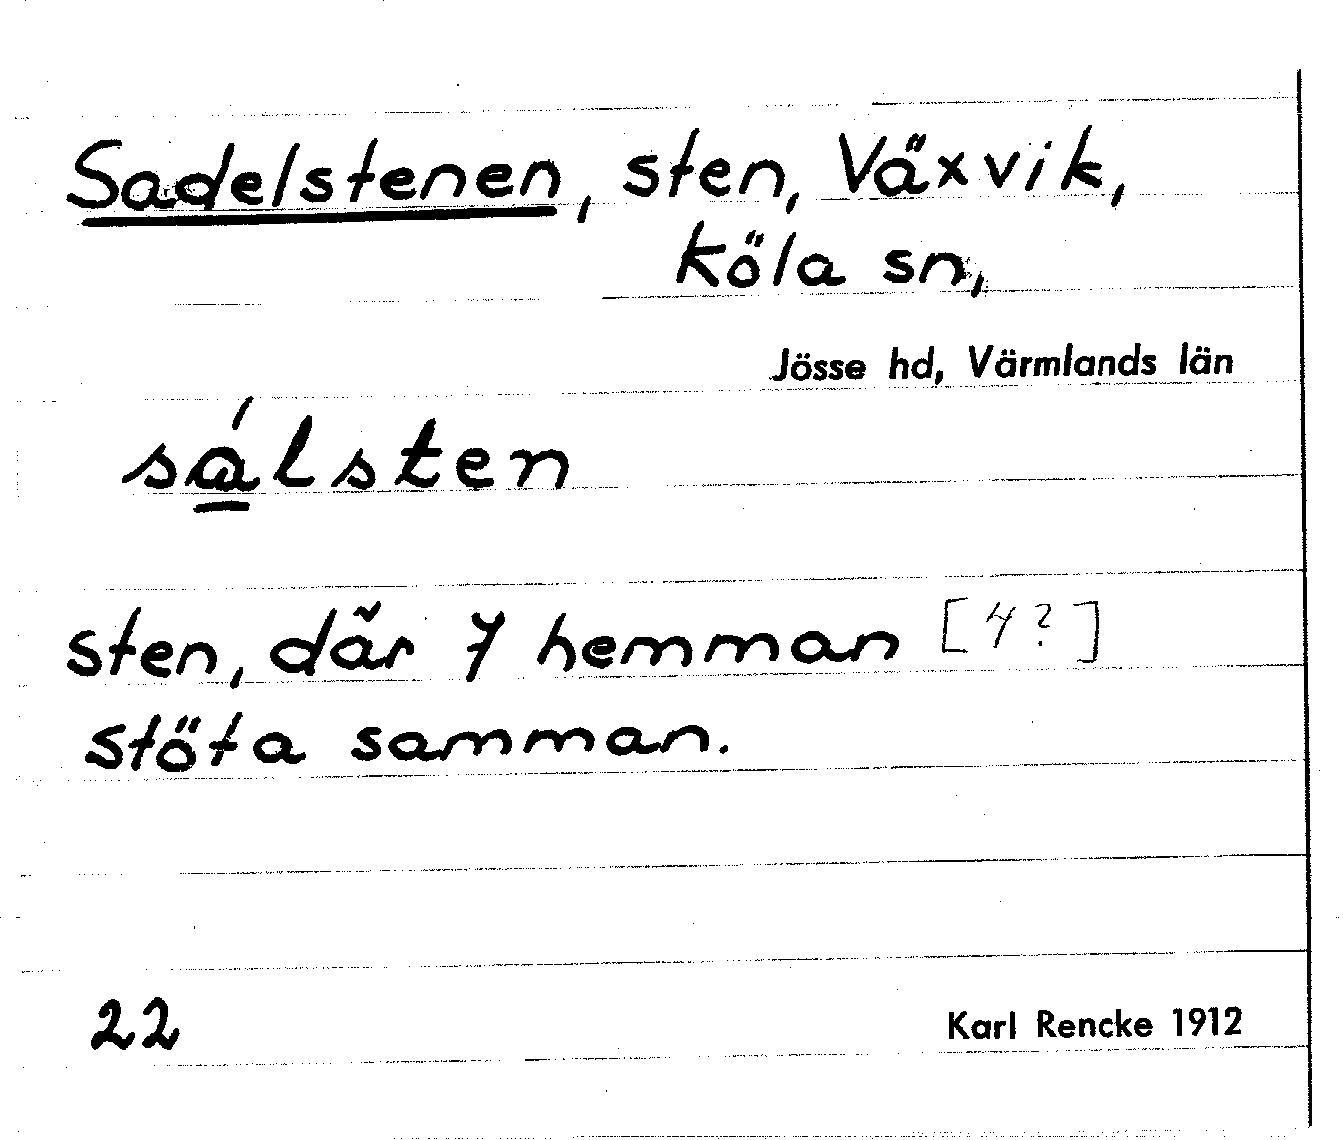 Sadelstenen, sten, Växvik,
Köla sn,
Jösse hd, Värmlands län
sá̱lsten
sten, där 7 hemman [4?]
stöta samman.
22
Karl Rencke 1912